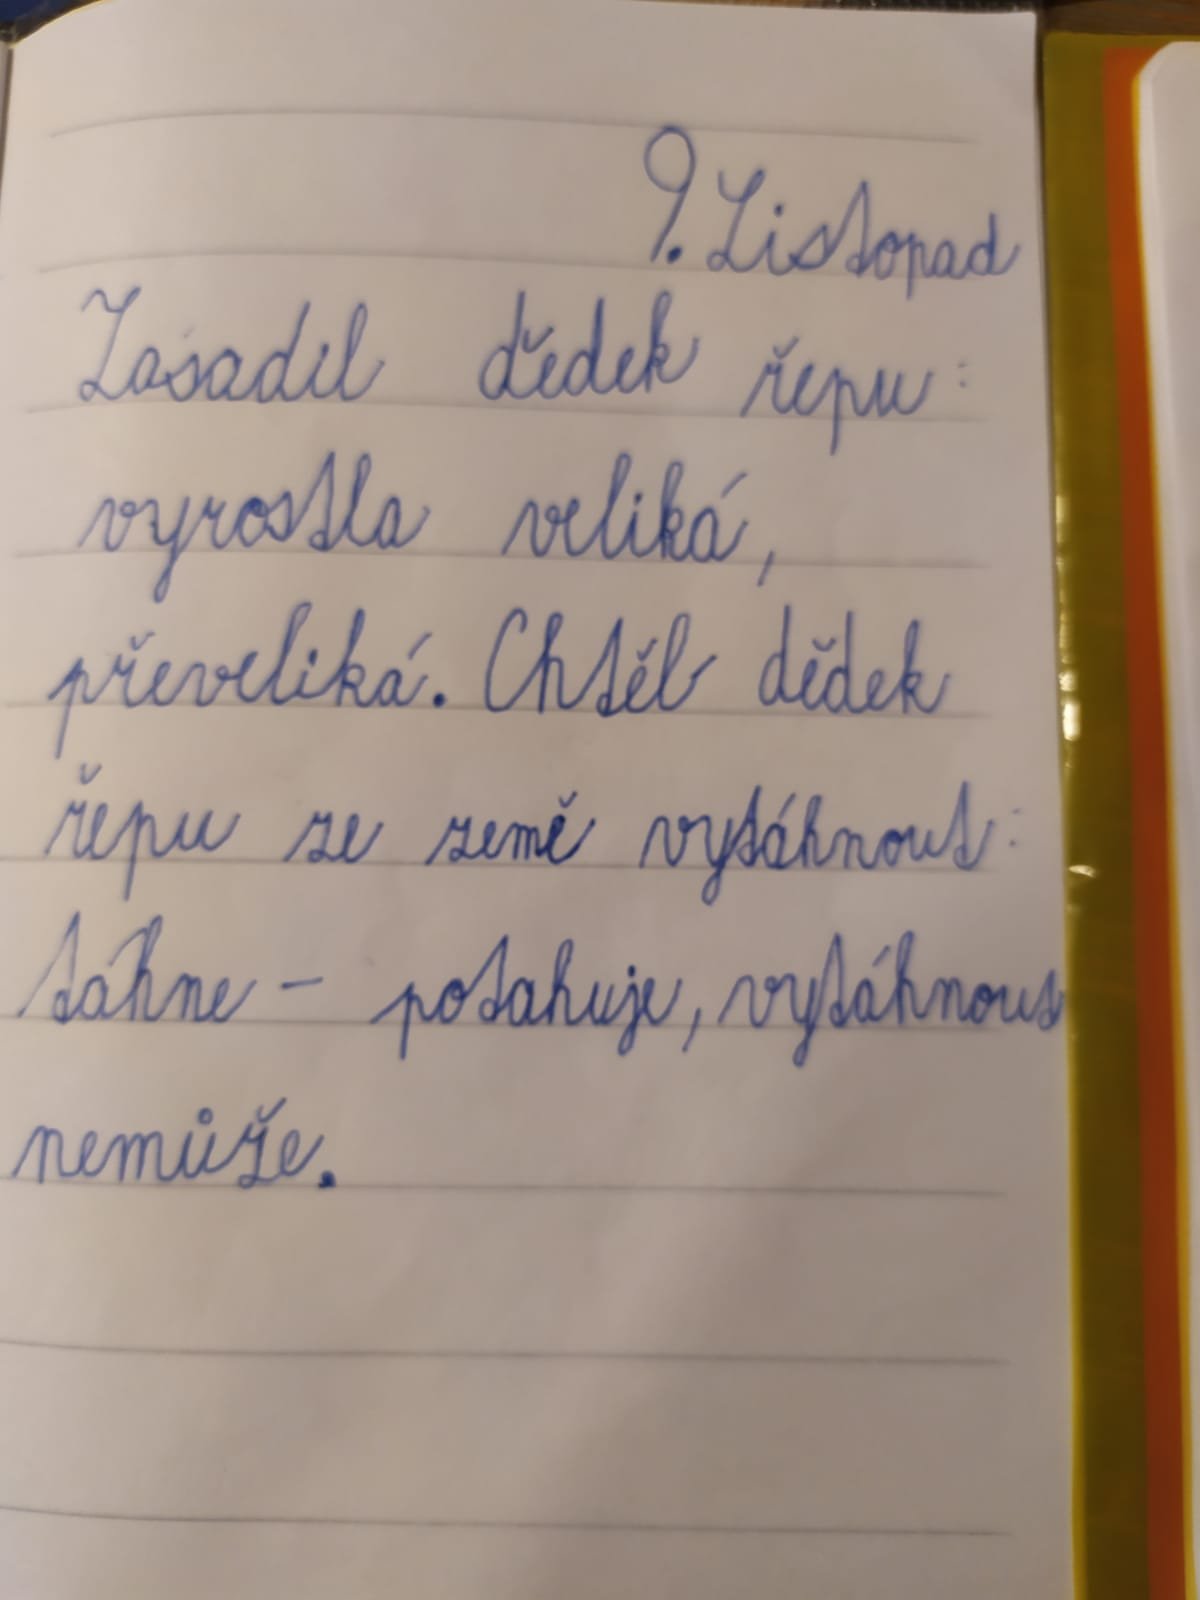 9. Listopad
Zasadil dědek řepu:
vyrostla veliká,
převeliká. Chtěl dědek
řepu ze země vytáhnout:
táhne - potahuje, vytáhnout
nemůže.